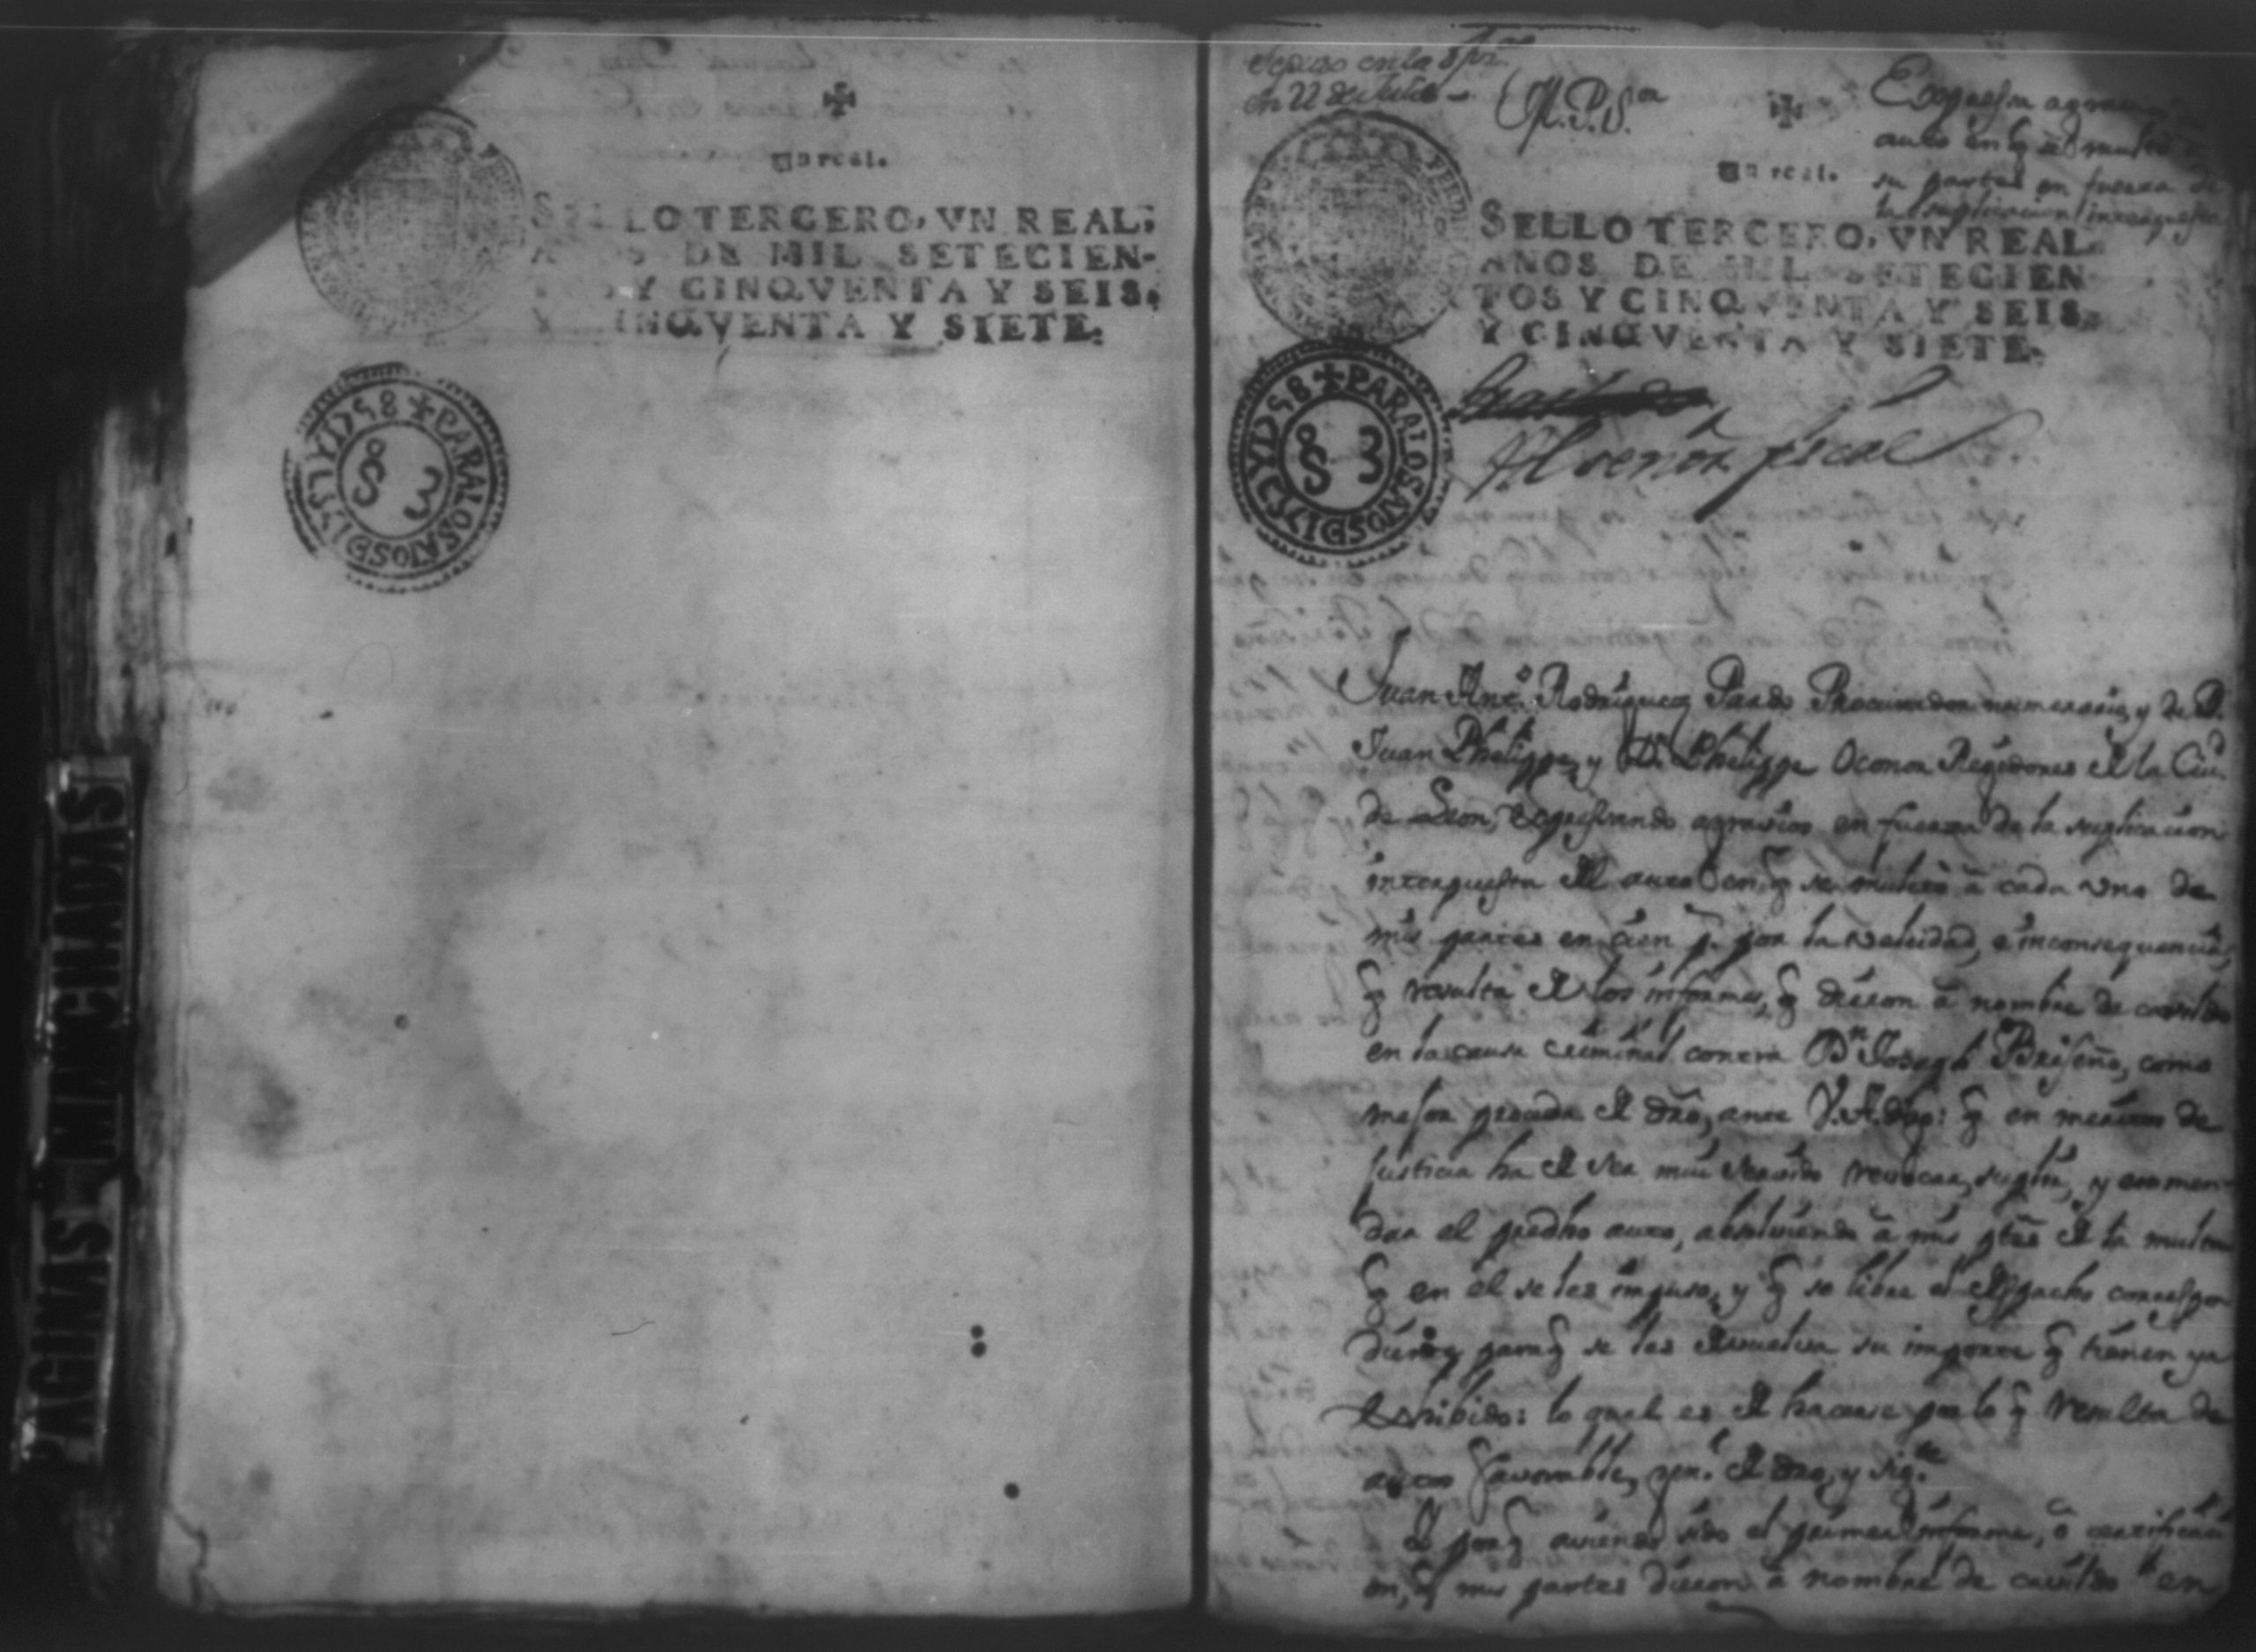 PAGINAS MANCHADAS
Un real.
SELLO TERCERO, VN REAL,
DE MIL SETECIEN-
Y CINQVENTA Y SEIS,
Y CINQVENTA Y SIETE.
PARA LOS AÑOS DE 175 Y D 58
S 3
en 22 de
M. P. S.or
Expressa agravios
auto en q se multó
su partes en fuerza de
la suplicacion interpuesta
Un real.
SELLO TERCERO, VN REAL
AÑOS DE MIL SETECIEN
TOS Y CINQVENTA Y SEIS,
Y CINQVENTA Y SIETE.
PARA LOS AÑOS DE 175 Y D 58
S 3
Al señor fiscal
Juan Ant.o Rodriguez Pardo Procurador numerario, y de D.
Juan Phelippe, y Dn. Phelippe Oconor Regidores de la Ciu.d
de Leon, expressando agravios en fuerza de la suplicacion
interpuesta del auto en q se multó à cada uno de
mis partes en cien p.s por la veleidad, e inconsequencia,
q resulta de los informes, q dieron à nombre de cavildo
en la causa criminal contra Dn Joseph Briseño, como
mejor proceda de dro, ante V.A. digo: q en meritos de
justicia ha de ser mui servido revocar, suplir, y enmen-
dar el predho auto, absolviendo à mis ptes de la multa
q en el se les impuso, y q se libre el despacho correspon
diente para q se les devuelva su importe q tienen ya
exhibido: lo qual es de hacerse por lo q resulta de
autos favorable, gen.l de dro, y sig.te
Y porq aviendo sido el primer informe, ò certificaci
on, q mis partes dieron à nombre de cavildo en